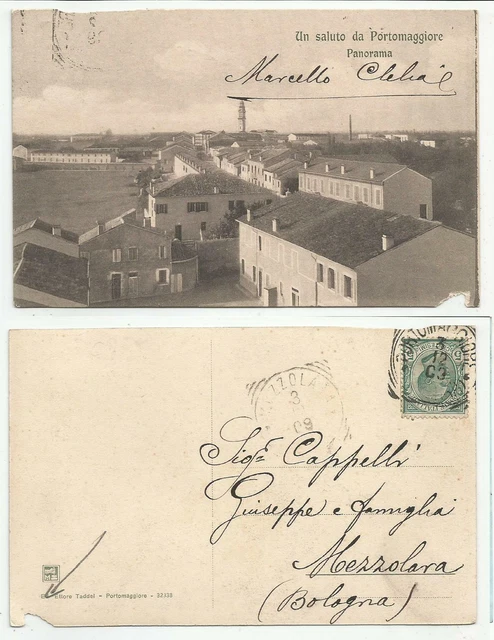 Un saluto da Portomaggiore
Panorama
Marcello Clelia
PORTOMAGGIORE
3
12
09
MEZZOLARA
3
09
Sigr Cappelli
Giuseppe e famiglia
Mezzolara
(Bologna)
Ettore Taddei - Portomaggiore - 32338